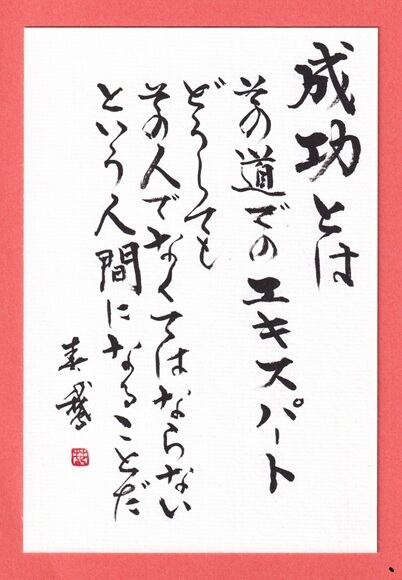 成功とは
その道でのエキスパート
どうしても
その人でなくてはならない
という人間になることだ